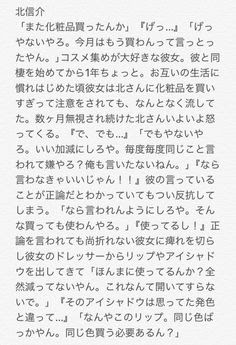 北信介
「また化粧品買ったんか」『げっ...』「げっ
やないやろ。今月はもう買わんって言っとっ
たやん。｣コスメ集めが大好きな彼女。彼と同
棲を始めてから1年ちょっと。お互いの生活に
慣れはじめた頃彼女は北さんに化粧品を買い
すぎって注意をされても、なんとなく流して
た。数ヶ月無視され続けた北さんいよいよ怒
ってくる。『で、でも...』「でもやないや
ろ。いい加減にしろや。毎度毎度同じこと言
われて嫌やろ？俺も言いたないねん。｣『なら
言わなきゃいいじゃん！！』彼の言っている
ことが正論だとわかっていてもつい反抗して
しまう。「なら言われんようにしろや。そん
な買っても使わんやろ。｣『使ってるし！』正
論を言われても尚折れない彼女に痺れを切ら
し彼女のドレッサーからリップやアイシャド
ウを出してきて「ほんまに使ってるんか？全
然減ってないやん。これなんて開いてすらな
いで。」『そのアイシャドウは思ってた発色
と違って...』「なんやこのリップ。同じ色ば
っかやん。同じ色買う必要あるん？」